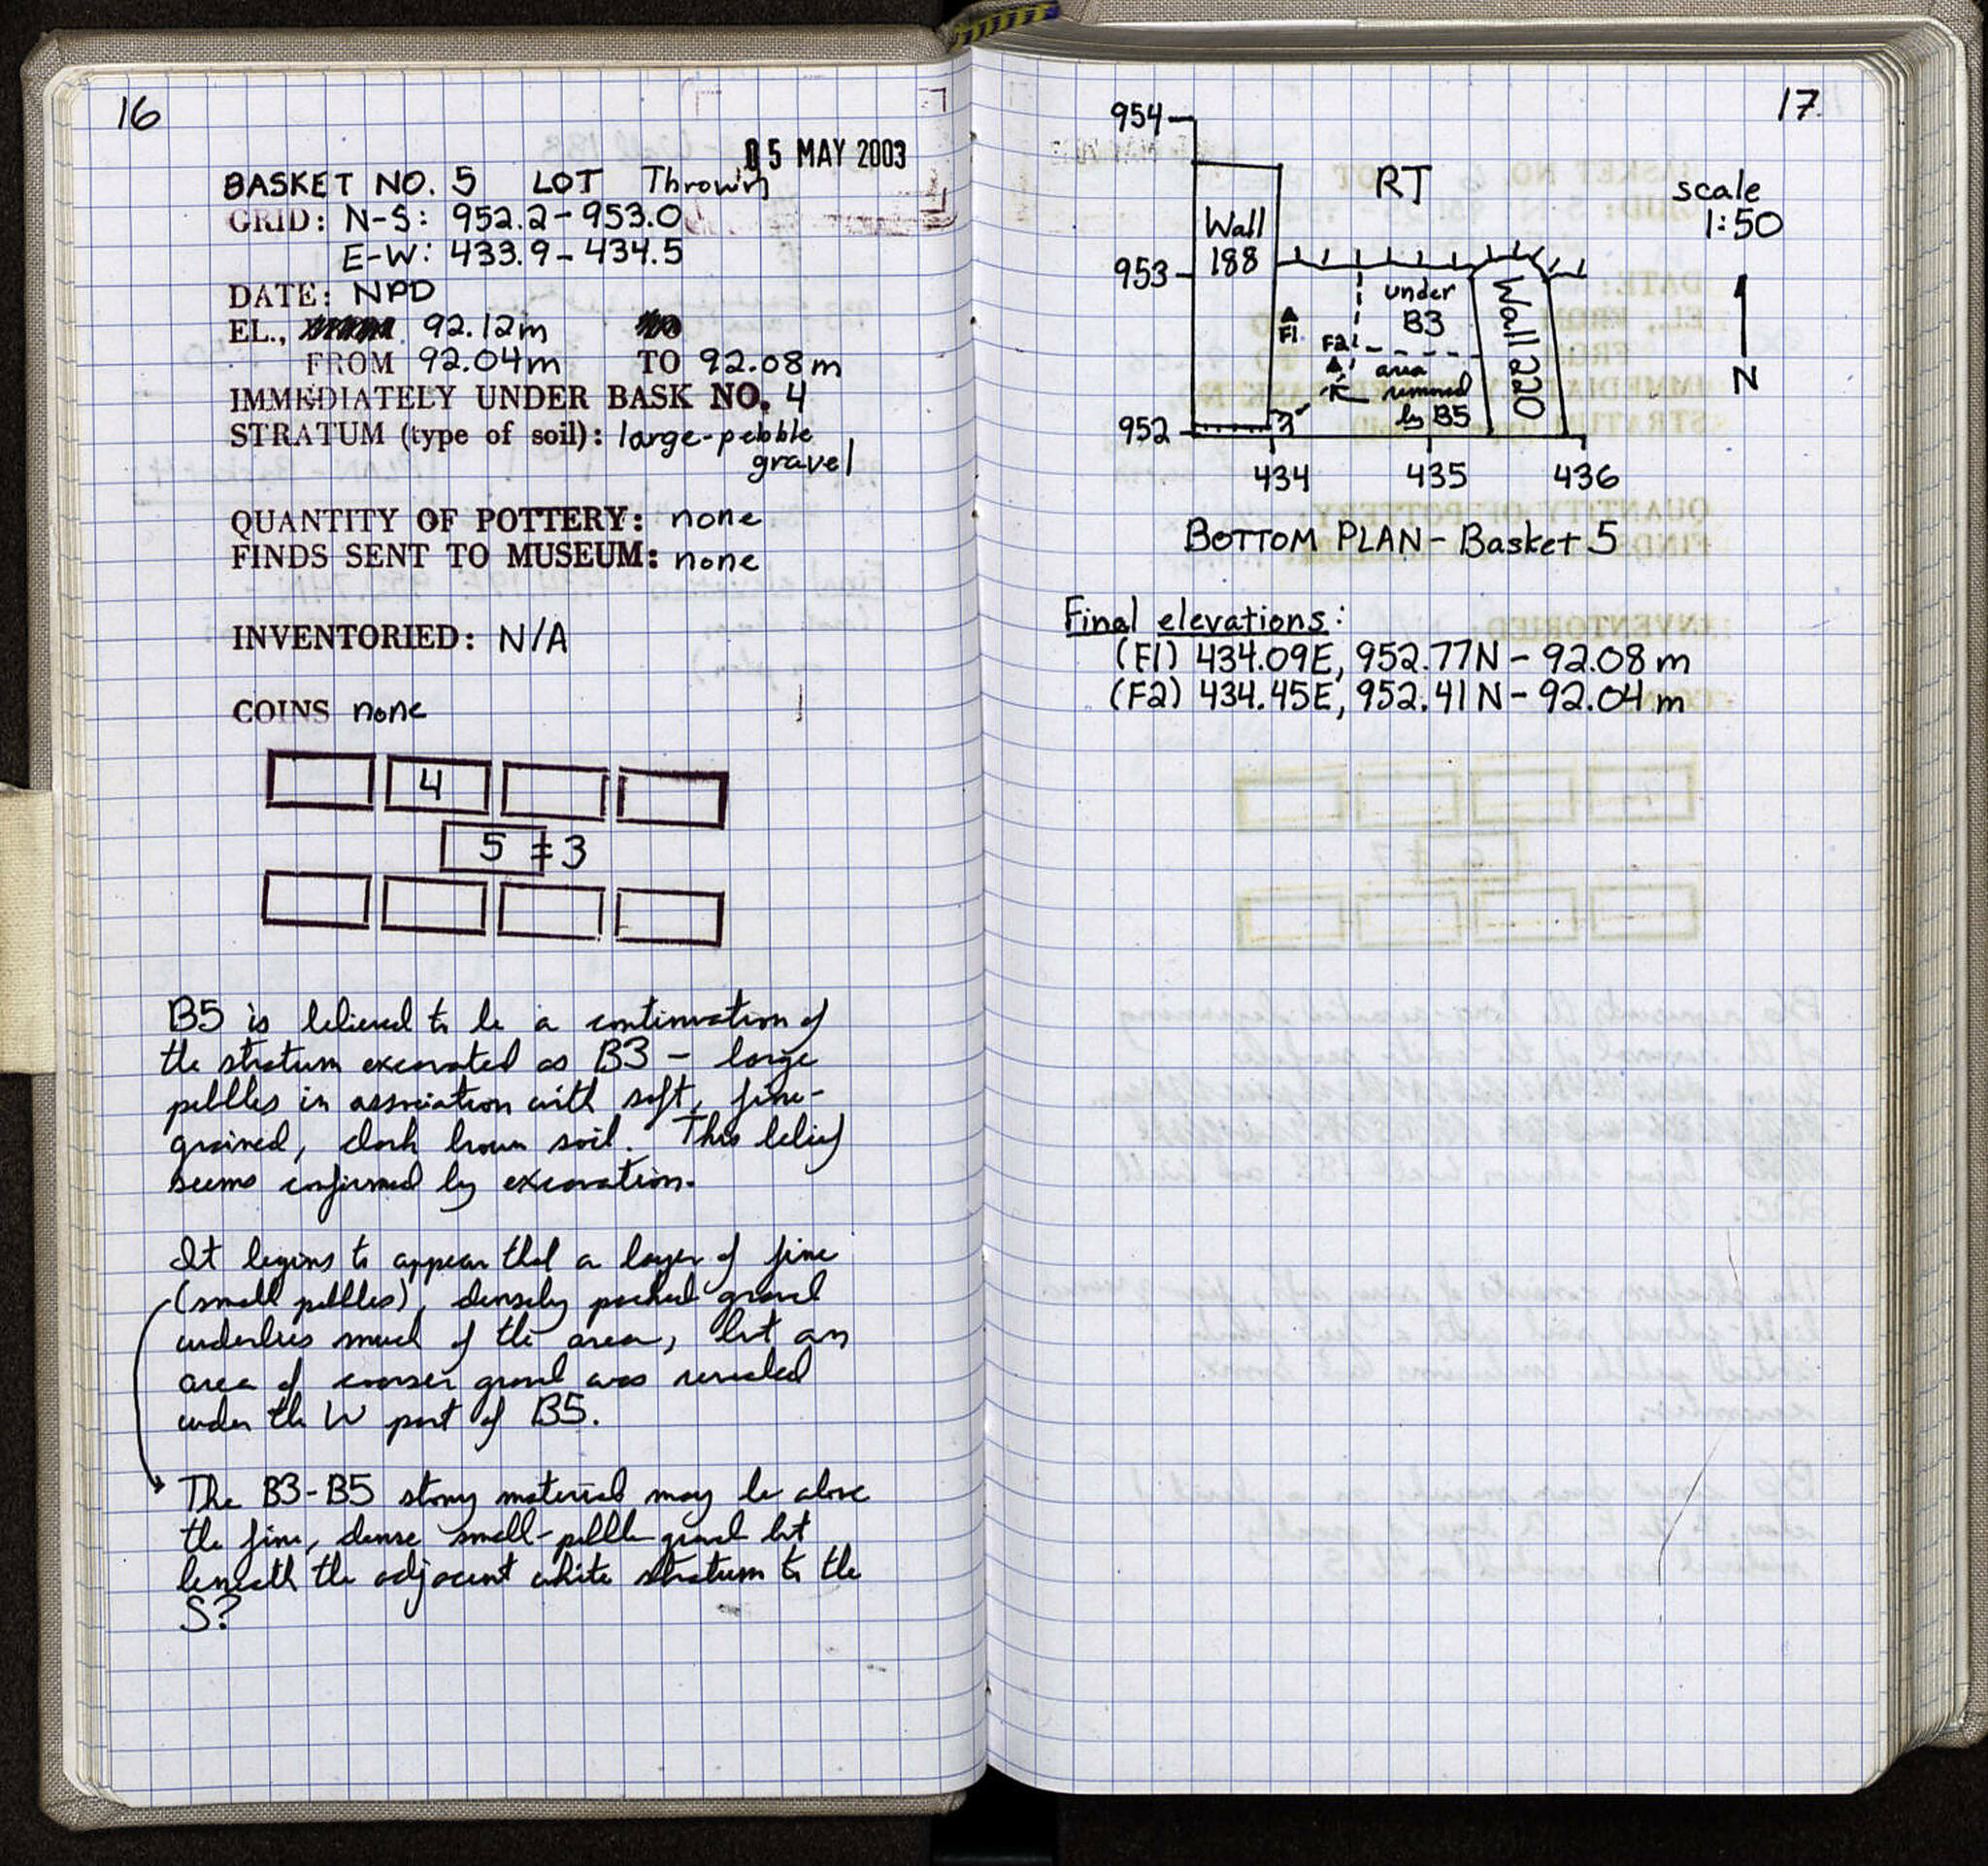 16
05 MAY 2003
BASKET NO. 5 LOT Thrown
GRID: N-S: 952.2-953.0
E-W: 433.9-434.5
DATE: NPD
EL., 92.12m
FROM 92.04m TO 92.08m
IMMEDIATELY UNDER BASK NO. 4
STRATUM (type of soil): large-pebble
gravel
QUANTITY OF POTTERY: none
FINDS SENT TO MUSEUM: none
INVENTORIED: N/A
COINS none
4
5 ‡ 3
B5 is believed to be a continuation of
the stratum excavated as B3 - large
pebbles in association with soft, fine-
grained, dark brown soil. This belief
seems confirmed by excavation.
It begins to appear that a layer of fine
(small pebbles), densely packed gravel
underlies much of the area, but an
area of coarser gravel was revealed
under the W part of B5.
The B3-B5 stony material may be above
the fine, dense small-pebble gravel but
beneath the adjacent white stratum to the
S?
17
954
RT
scale
1:50
Wall
188
953
under
B3
Wall 220
F1
F2
area
removed
by B5
N
952
434 435 436
BOTTOM PLAN - Basket 5
Final elevations:
(F1) 434.09E, 952.77N - 92.08m
(F2) 434.45E, 952.41N - 92.04m